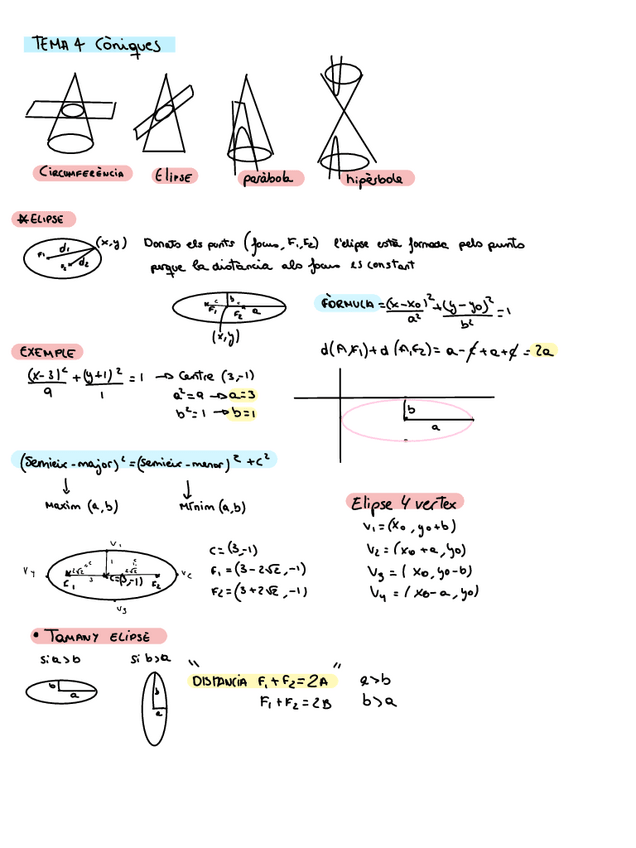 TEMA 4 Còniques
CIRCUMFERÈNCIA
ELIPSE
paràbola
hipèrbola
*ELIPSE
(x,y)
d1
F1
d2
F2
Donats els punts (focus, F1, F2) l'elipse està formada pels punts
perque la distància als focus es constant
c
b
F1
F2
a
(x,y)
FÒRMULA = (x-x0)²/a² + (y-y0)²/b² = 1
EXEMPLE
d(A,F1) + d(A,F2) = a - c + a + c = 2a
(x-3)²/9 + (y+1)²/1 = 1 → Centre (3,-1)
a² = 9 → a = 3
b² = 1 → b = 1
b
a
(Semieix-major)² = (semieix-menor)² + c²
Maxim (a,b)
Mínim (a,b)
Elipse 4 vertex
V1 = (x0, y0+b)
V2 = (x0+a, y0)
V3 = (x0, y0-b)
V4 = (x0-a, y0)
V1
V4
2√2
1
3
2√2
C=(3,-1)
F2
V2
V3
C = (3,-1)
F1 = (3-2√2, -1)
F2 = (3+2√2, -1)
• TAMANY ELIPSE
si a>b
si b>a
b
a
b
a
"DISTÀNCIA F1+F2 = 2A" a>b
F1+F2 = 2B b>a